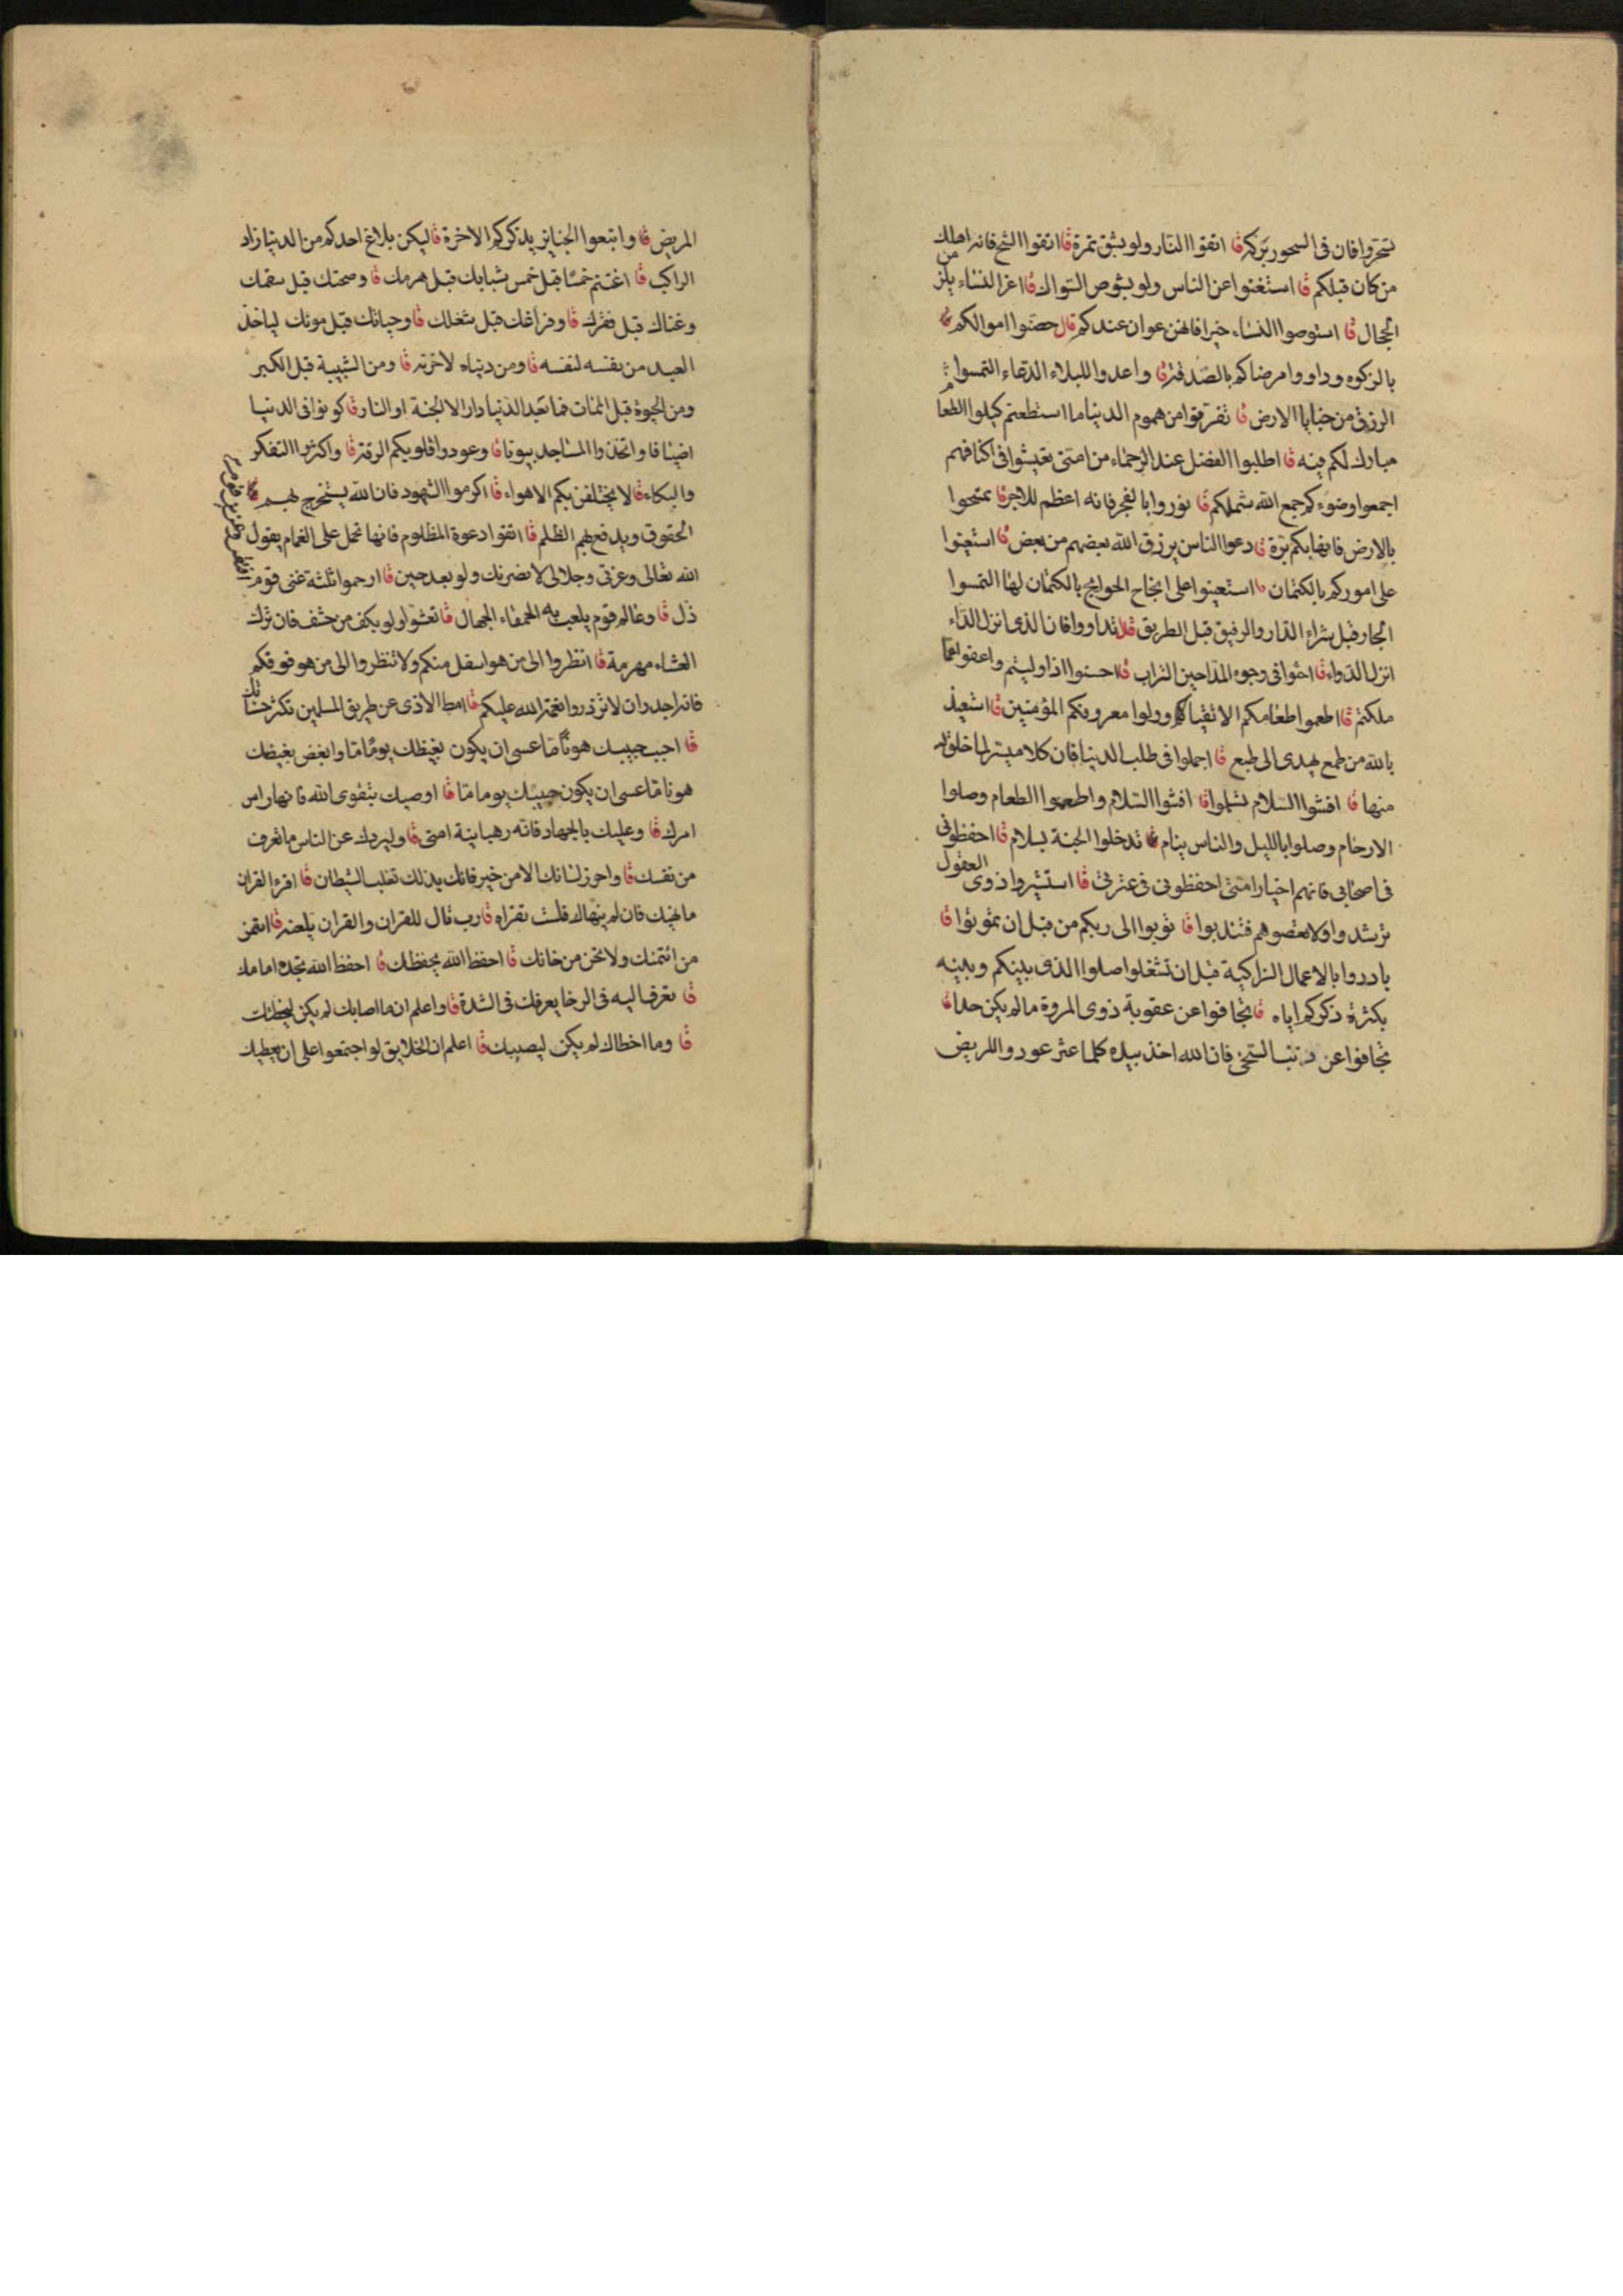 تسحروا فان فى السحور بركة قا اتقوا النار ولو بشق تمرة قا اتقوا الشح فانه اهلك
من كان قبلكم قا استغنوا عن الناس ولو بشوص السواك قا اعزا لنساء يلز من
الحجال قا استوصوا النساء خيرا فانهن عوان عندكم قال حصنوا اموالكم
بالزكوة وداووا مرضاكم بالصدقة قا واعدوا للبلاء الدعاء التمسوا
الرزق من خبايا الارض قا تفرقوا من هموم الدنيا ما استطعتم كيلوا الطعام
مبارك لكم فيه قا اطلبوا الفضل عند الرحماء من امتى تعيشوا فى اكنافهم
اجمعوا وضوءكم جمع الله شملكم قا نوروا بالفجر فانه اعظم للاجر قا تمسحوا
بالارض فانها بكم برة قا دعوا الناس يرزق الله بعضهم من بعض قا استعينوا
على اموركم بالكتمان قا استعينوا على انجاح الحوايج بالكتمان لها التمسوا
الجار قبل شراء الدار والرفيق قبل الطريق قلا تداووا فان الذى انزل الداء
انزل الدواء قا احثوا فى وجوه المداحين التراب قا احسنوا اذا وليتم واعفوا عما
ملكتم قا اطعموا طعامكم الاتقياء وولوا معروفكم المؤمنين قا استعيذ
بالله من طمع يهدى الى طبع قا اجملوا فى طلب الدنيا فان كلا ميسر لما خلق له
منها قا افشوا السلام تسلموا قا افشوا السلام واطعموا الطعام وصلوا
الارحام وصلوا بالليل والناس ينام تدخلوا الجنة بسلام قا احفظونى
فى اصحابى فانهم اخيار امتى احفظونى فى عترتى قا استشيروا ذوى العقول
ترشدوا ولا تعصوهم فتندبوا قا توبوا الى ربكم من قبل ان تموتوا قا
بادروا بالاعمال الزاكية قبل ان تشغلوا صلوا الذى بينكم وبينه
بكثرة ذكركم اياه قا تجافوا عن عقوبة ذوى المروة ما لم يكن حدا قا
تجافوا عن ذنب السخى فان الله اخذ بيده كلما عثر عودوا المريض
المريض قا واتبعوا الجنايز يذكركم الاخرة قا ليكن بلاغ احدكم من الدنيا زاد
الراكب قا اغتنم خمسا قبل خمس شبابك قبل هرمك قا وصحتك قبل سقمك
وغناك قبل فقرك قا وفراغك قبل شغلك قا وحياتك قبل موتك لياخذ
العبد من نفسه لنفسه قا ومن دنياه لاخرته قا ومن الشبيبة قبل الكبر
ومن الحيوة قبل الممات فما بعد الدنيا دار الا الجنة او النار قا كونوا فى الدنيا
اضيافا واتخذوا المساجد بيوتا قا وعودوا قلوبكم الرقة قا واكثروا التفكر
والبكاء قا لا يختلفن بكم الاهواء قا اكرموا الشهود فان الله يستخرج بهم
الحقوق ويدفع بهم الظلم قا اتقوا دعوة المظلوم فانها تحمل على الغمام يقول
الله تعالى وعزتى وجلالى لانصرنك ولو بعد حين قا ارحموا ثلثة غنى قوم
ذل قا وعالم قوم يلعب به الحمقاء الجهال قا تعشوا ولو بكف من حشف فان ترك
العشاء مهرمة قا انظروا الى من هو اسفل منكم ولا تنظروا الى من هو فوقكم
فانه اجدر ان لا تزدروا نعمة الله عليكم قا امط الاذى عن طريق المسلمين تكثر حسناتك
قا احبب حبيبك هونا ما عسى ان يكون بغيظك يوما ما وابغض بغيضك
هونا ما عسى ان يكون حبيبك يوما ما قا اوصيك بتقوى الله فانها راس
امرك قا وعليك بالجهاد فانه رهبانية امتى قا وليردك عن الناس ما تعرف
من نفسك قا واحرز لسانك الا من خير فانك بذلك تغلب الشيطان قا اقرء القران
ما نهيك فان لم ينهاك فلست تقراه قا رب قال للقران والقران يلعنه قا ائتمن
من ائتمنك ولا تخن من خانك قا احفظ الله يحفظك قا احفظ الله تجده امامك
قا تعرف اليه فى الرخا يعرفك فى الشدة قا واعلم ان ما اصابك لم يكن ليخطئك
قا وما اخطاك لم يكن ليصيبك قا اعلم ان الخلايق لو اجتمعوا على ان يعطيك